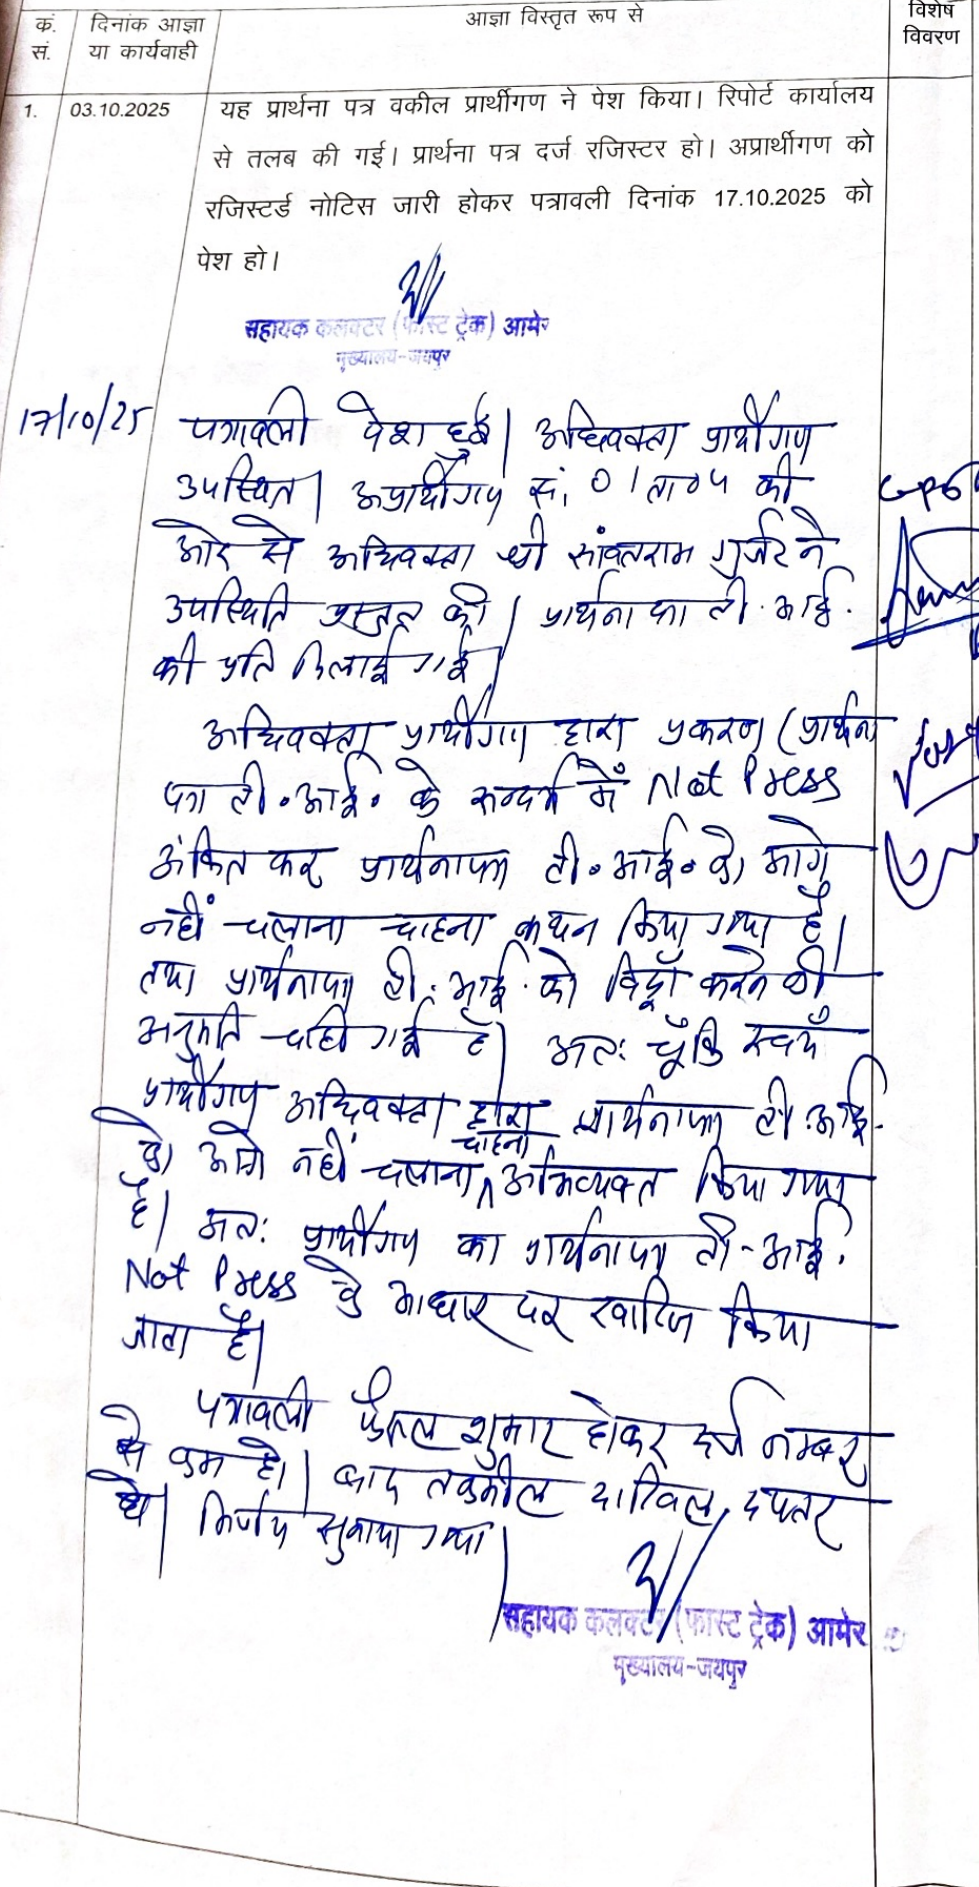 क्रं. सं.
दिनांक आज्ञा या कार्यवाही
आज्ञा विस्तृत रूप से
विशेष विवरण
1. 03.10.2025 यह प्रार्थना पत्र वकील प्रार्थीगण ने पेश किया। रिपोर्ट कार्यालय
से तलब की गई। प्रार्थना पत्र दर्ज रजिस्टर हो। अप्रार्थीगण को
रजिस्टर्ड नोटिस जारी होकर पत्रावली दिनांक 17.10.2025 को
पेश हो।
सहायक कलक्टर (फास्ट ट्रेक) आमेर
मुख्यालय-जयपुर
17/10/25 पत्रावली पेश हुई। अधिवक्ता प्रार्थीगण
उपस्थित। अप्रार्थीगण सं. 01 ता 04 की
ओर से अधिवक्ता श्री सांवलराम गुर्जर ने
उपस्थिति प्रस्तुत की। प्रार्थना पत्र टी.आई.
की प्रति दिलाई गई।
अधिवक्ता प्रार्थीगण द्वारा प्रकरण (प्रार्थना
पत्र टी.आई. के सन्दर्भ में Not Press
अंकित कर प्रार्थनापत्र टी.आई. को आगे
नहीं चलाना चाहना कथन किया गया है।
तथा प्रार्थनापत्र टी.आई. को विड्रॉ करने की
अनुमति चाही गई है। अतः चूँकि स्वयं
प्रार्थीगण अधिवक्ता द्वारा प्रार्थनापत्र टी.आई.
को आगे नहीं चलाना चाहना अभिव्यक्त किया गया
है। अतः प्रार्थीगण का प्रार्थनापत्र टी.आई.
Not Press के आधार पर खारिज किया
जाता है।
पत्रावली फैसल शुमार होकर दर्ज नम्बर
से कम हो। बाद तकमील दाखिल दफ्तर
हो। निर्णय सुनाया गया।
सहायक कलक्टर (फास्ट ट्रेक) आमेर
मुख्यालय-जयपुर